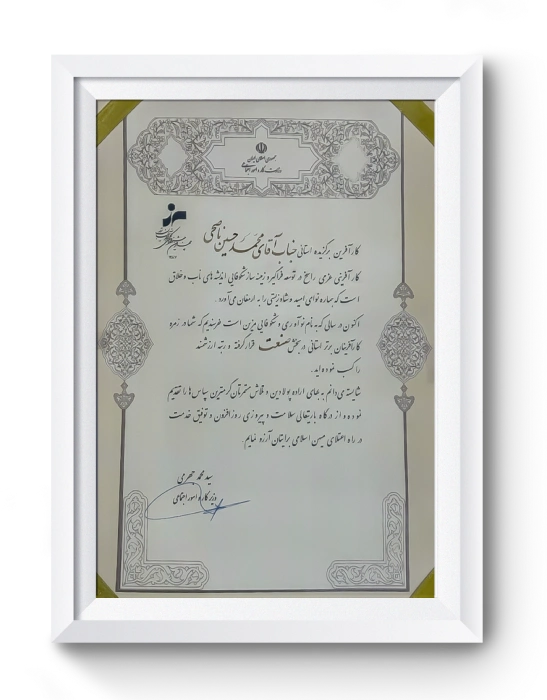 جمهوری اسلامی ایران
وزارت کار و امور اجتماعی
کارآفرین برگزیده استانی جناب آقای محمدحسین ناصحی
کارآفرینی عزمی راسخ در توسعه فراگیر و زمینه ساز شکوفایی اندیشه های ناب و خلاق
است که همواره نوای امید و نشاط زیستن را به ارمغان می آورد.
اکنون در سالی که به نام نوآوری و شکوفایی مزین است خرسندیم که شما در زمره
کارآفرینان برتر استانی در بخش صنعت قرار گرفته و رتبه ارزشمند
را کسب نموده اید.
شایسته می دانم به پاس اراده پولادین و تلاش مستمرتان گرمترین سپاس ها را تقدیم
نموده و از درگاه باریتعالی سلامت و پیروزی روزافزون و توفیق خدمت
در راه اعتلای میهن اسلامی برایتان آرزو نمایم.
سید محمد جهرمی
وزیر کار و امور اجتماعی